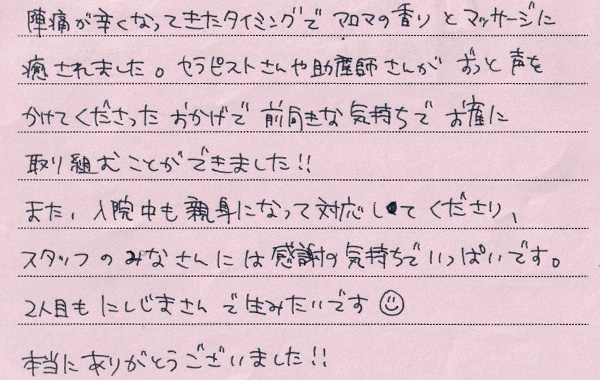 陣痛が辛くなってきたタイミングでアロマの香りとマッサージに
癒されました。セラピストさんや助産師さんがずっと声を
かけてくださったおかげで前向きな気持ちでお産に
取り組むことができました!!
また、入院中も親身になって対応して くださり、
スタッフのみなさんには感謝の気持ちでいっぱいです。
2人目もにしじまさんで生みたいです☺
本当にありがとうございました!!